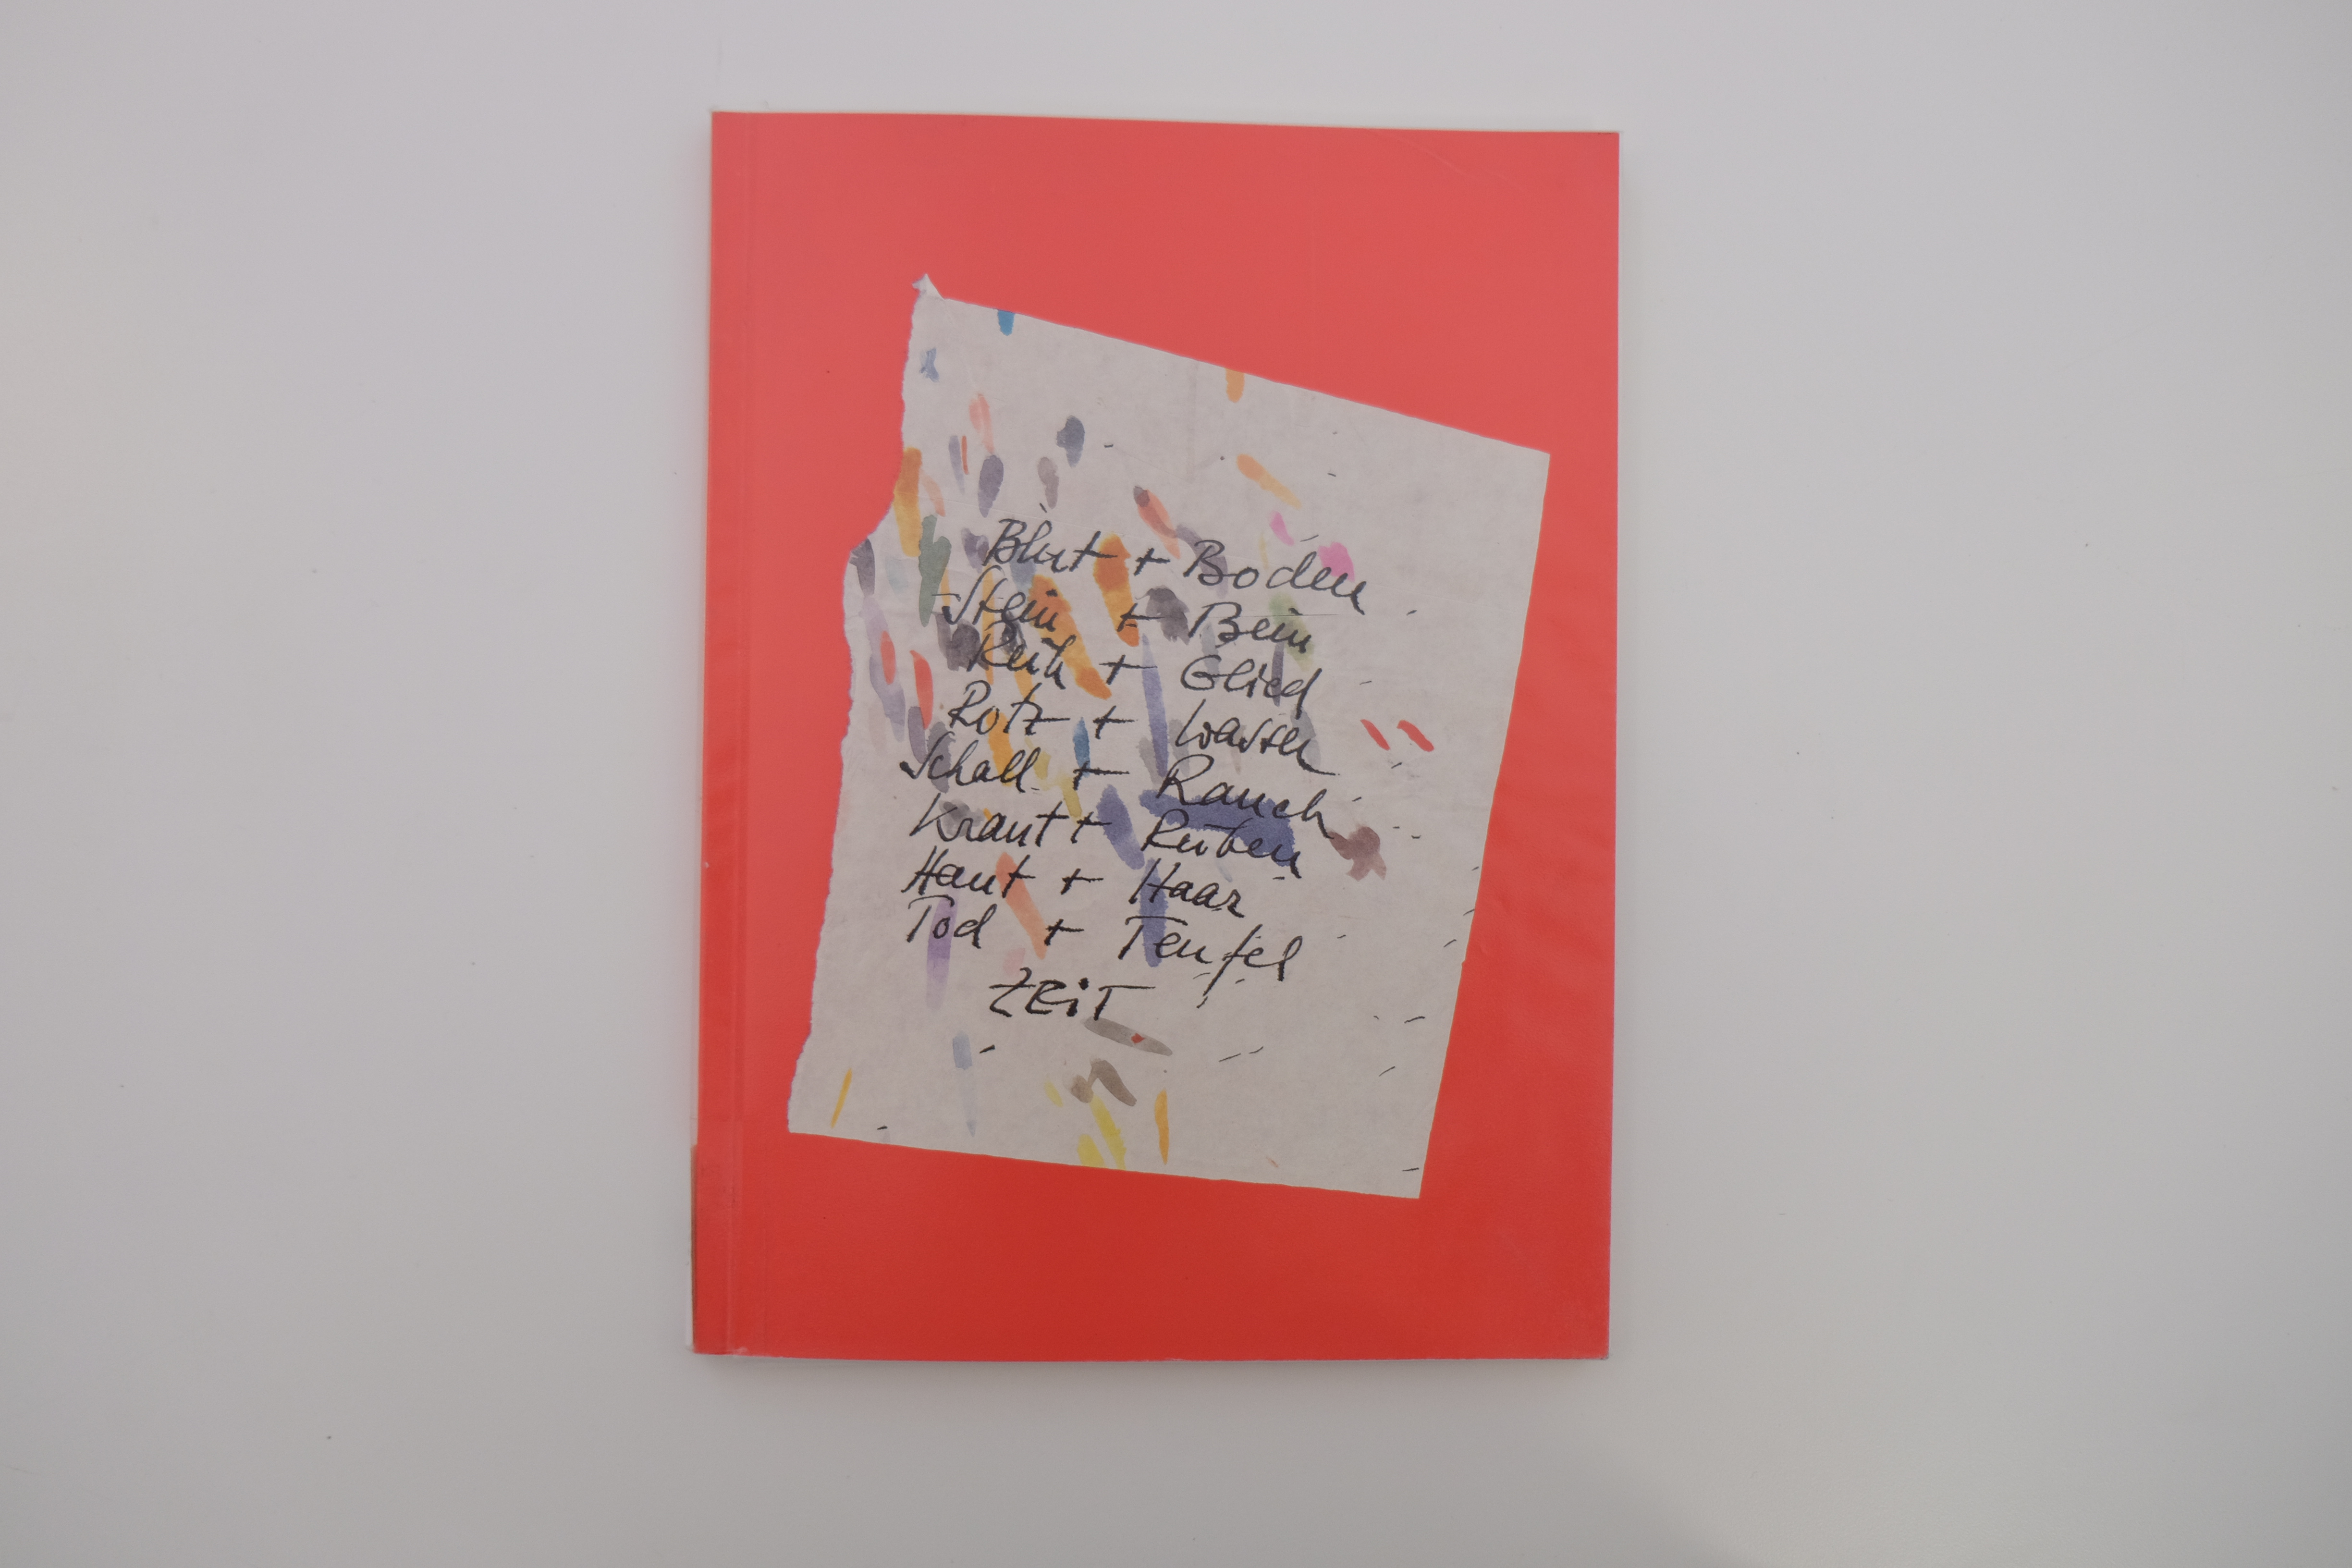 Blut + Boden
Stein + Bein
Reih + Glied
Rotz + Wasser
Schall + Rauch
Kraut + Rüben
Haut + Haar
Tod + Teufel
ZEiT